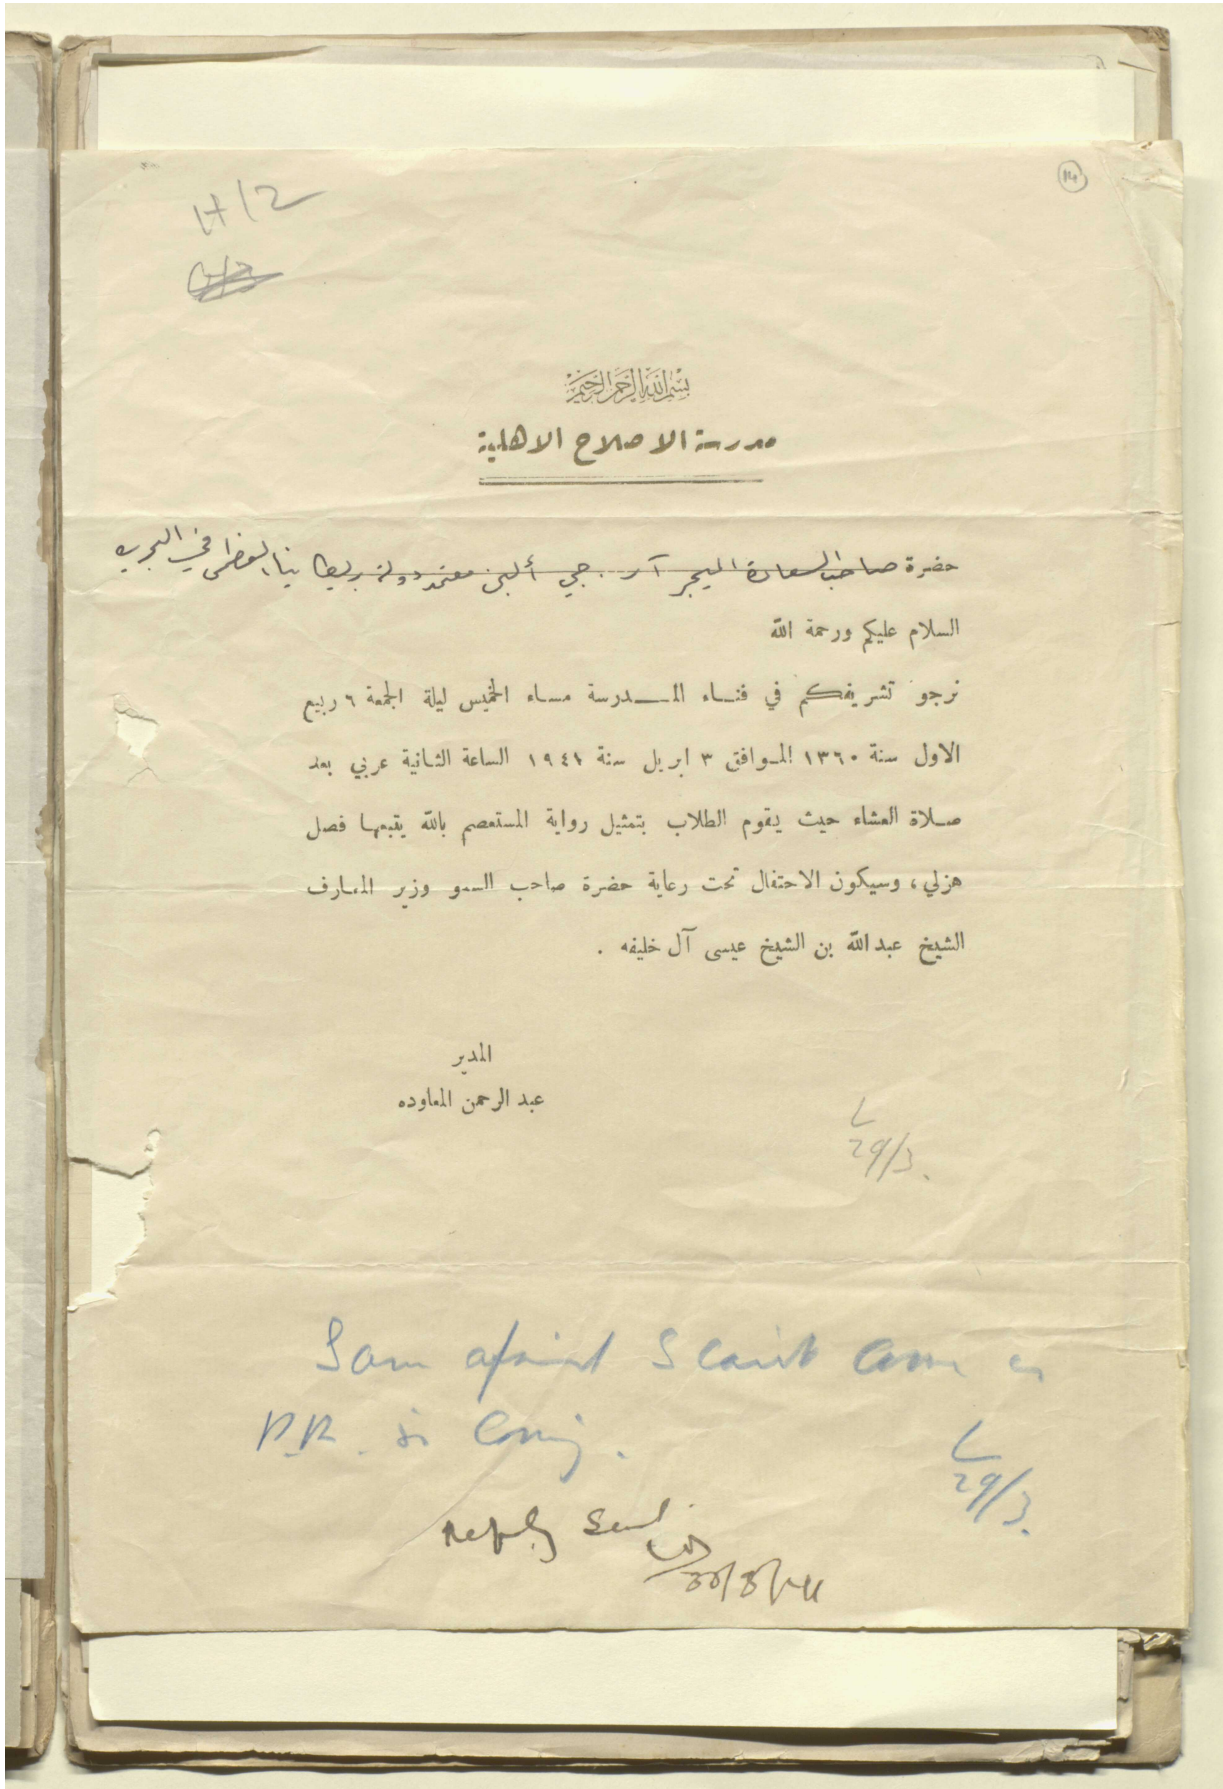 14
H/2
بسم الله الرحمن الرحيم
مدرسة الاصلاح الاهلية
حضرة صاحب السعادة الميجر آر . جي ألبن معتمد دولة بريطانيا العظمى في البحرين
السلام عليكم ورحمة الله
نرجو تشريفكم في فناء المدرسة مساء الخميس ليلة الجمعة ٦ ربيع
الاول سنة ١٣٦٠ الموافق ٣ ابريل سنة ١٩٤١ الساعة الثانية عربي بعد
صلاة العشاء حيث يقوم الطلاب بتمثيل رواية المستعصم بالله يتبعها فصل
هزلي، وسيكون الاحتفال تحت رعاية حضرة صاحب السمو وزير المعارف
الشيخ عبد الله بن الشيخ عيسى آل خليفه .
المدير
عبد الرحمن المعاوده
L
29/3.
I am afraid I can't come as
P.R. is coming.
L
29/3.
Reply sent
30/3/41